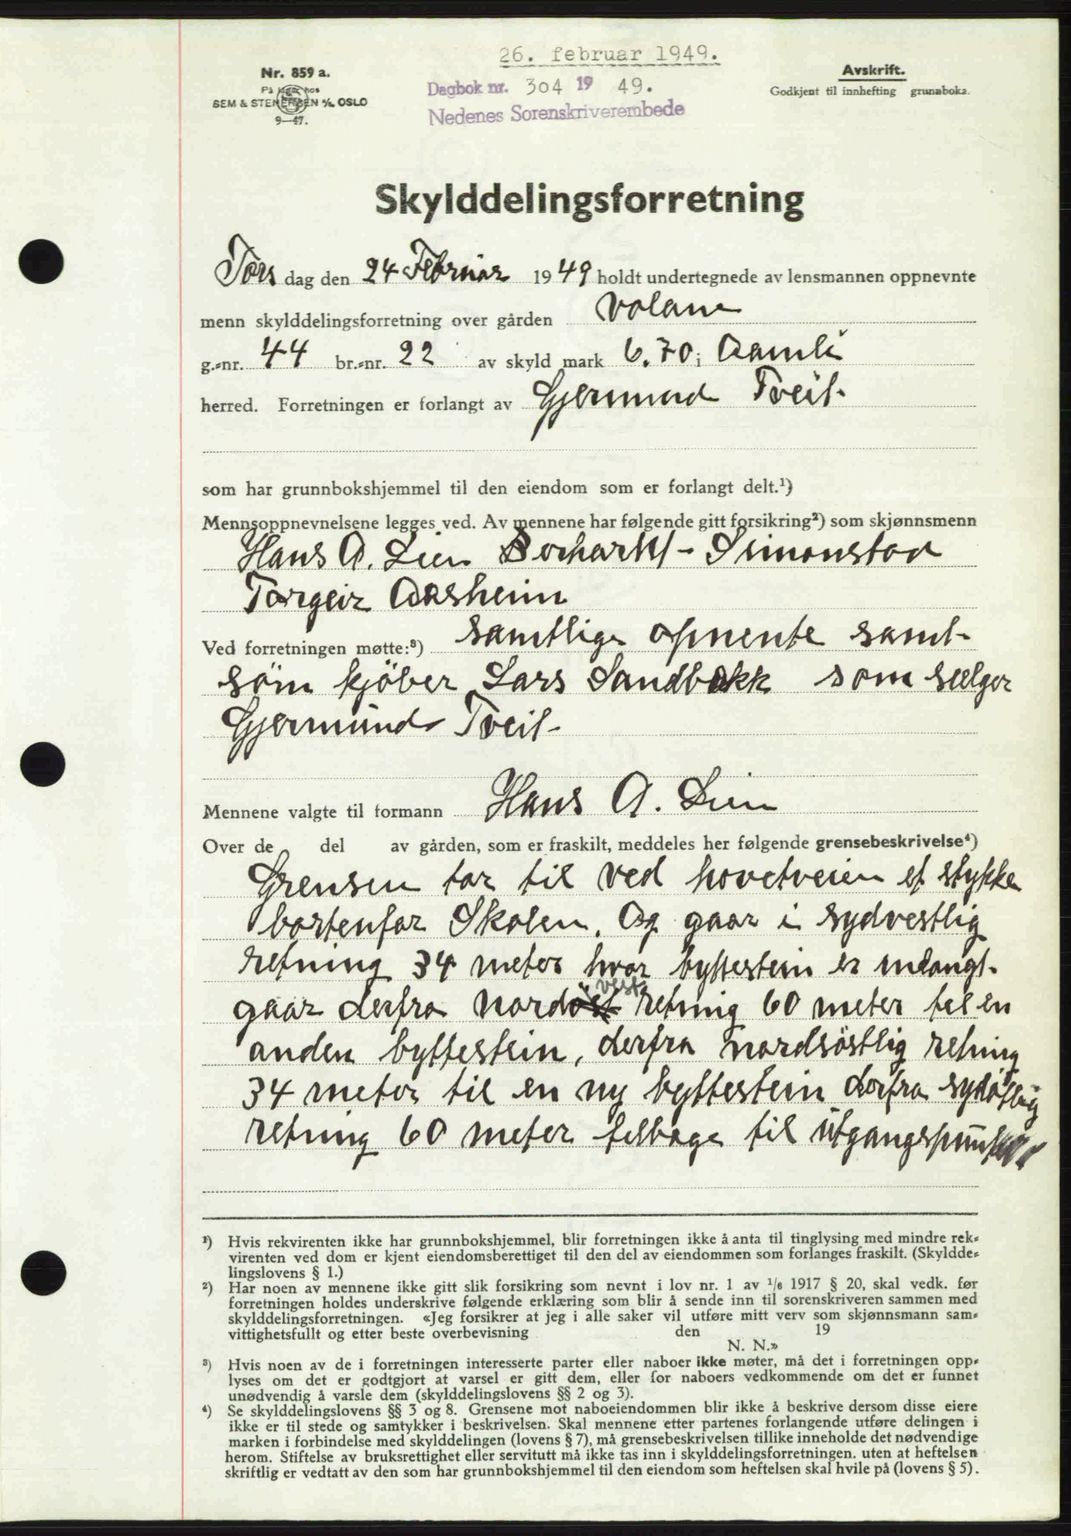 26. februar 1949.
Nr. 859 a.
På lager hos
SEM & STENERSEN A/S, OSLO
9—47.
Dagbok nr. 304 19 49.
Nedenes Sorenskriverembede
Avskrift.
Godkjent til innhefting grunnboka.
Skylddelingsforretning
Tors dag den 24 Februar 1949 holdt undertegnede av lensmannen oppnevnte
menn skylddelingsforretning over gården Volane
g.-nr. 44 br.-nr. 22 av skyld mark 6.70 i Aamli
herred. Forretningen er forlangt av Gjermund Tveit.
som har grunnbokshjemmel til den eiendom som er forlangt delt.¹)
Mennsoppnevnelsene legges ved. Av mennene har følgende gitt forsikring²) som skjønnsmenn
Hans A. Lien Simonstad
Torgeir Aasheim
Ved forretningen møtte:³) samtlige opnente samt-
søm kjöber Lars Sandbakk som sælger
Gjermund Tveit-
Mennene valgte til formann Hans A. Lien
Over de del av gården, som er fraskilt, meddeles her følgende grensebeskrivelse⁴)
Grensen tar til ved hovetveien et stykke
bortenfor Skolen. Og gaar i sydvestlig
retning 34 meter hvor byttestein er
gaar derfra nord vest retning 60 meter til en
anden byttestein, derfra nordöstlig retning
34 meter til en ny byttestein derfra sydöstlig
retning 60 meter tilbage til utgangspunktet
¹) Hvis rekvirenten ikke har grunnbokshjemmel, blir forretningen ikke å anta til tinglysing med mindre rek-
virenten ved dom er kjent eiendomsberettiget til den del av eiendommen som forlanges fraskilt. (Skyldde-
lingslovens § 1.)
²) Har noen av mennene ikke gitt slik forsikring som nevnt i lov nr. 1 av ¹/₆ 1917 § 20, skal vedk. før
forretningen holdes underskrive følgende erklæring som blir å sende inn til sorenskriveren sammen med
skylddelingsforretningen. «Jeg forsikrer at jeg i alle saker vil utføre mitt verv som skjønnsmann sam-
vittighetsfullt og etter beste overbevisning den 19
N. N.»
³) Hvis noen av de i forretningen interesserte parter eller naboer ikke møter, må det i forretningen opp-
lyses om det er godtgjort at varsel er gitt dem, eller for naboers vedkommende om det er funnet
unødvendig å varsle dem (skylddelingslovens §§ 2 og 3).
⁴) Se skylddelingslovens §§ 3 og 8. Grensene mot naboeiendommen blir ikke å beskrive dersom disse eiere
ikke er til stede og samtykker i beskrivelsen. Skal mennene etter partenes forlangende utføre delingen i
marken i forbindelse med skylddelingen (lovens § 7), må grensebeskrivelsen tillike inneholde det nødvendige
herom. Stiftelse av bruksrettighet eller servitutt må ikke tas inn i skylddelingsforretningen, uten at heftelsen
skriftlig er vedtatt av den som har grunnbokshjemmel til den eiendom som heftelsen skal hvile på (lovens § 5).